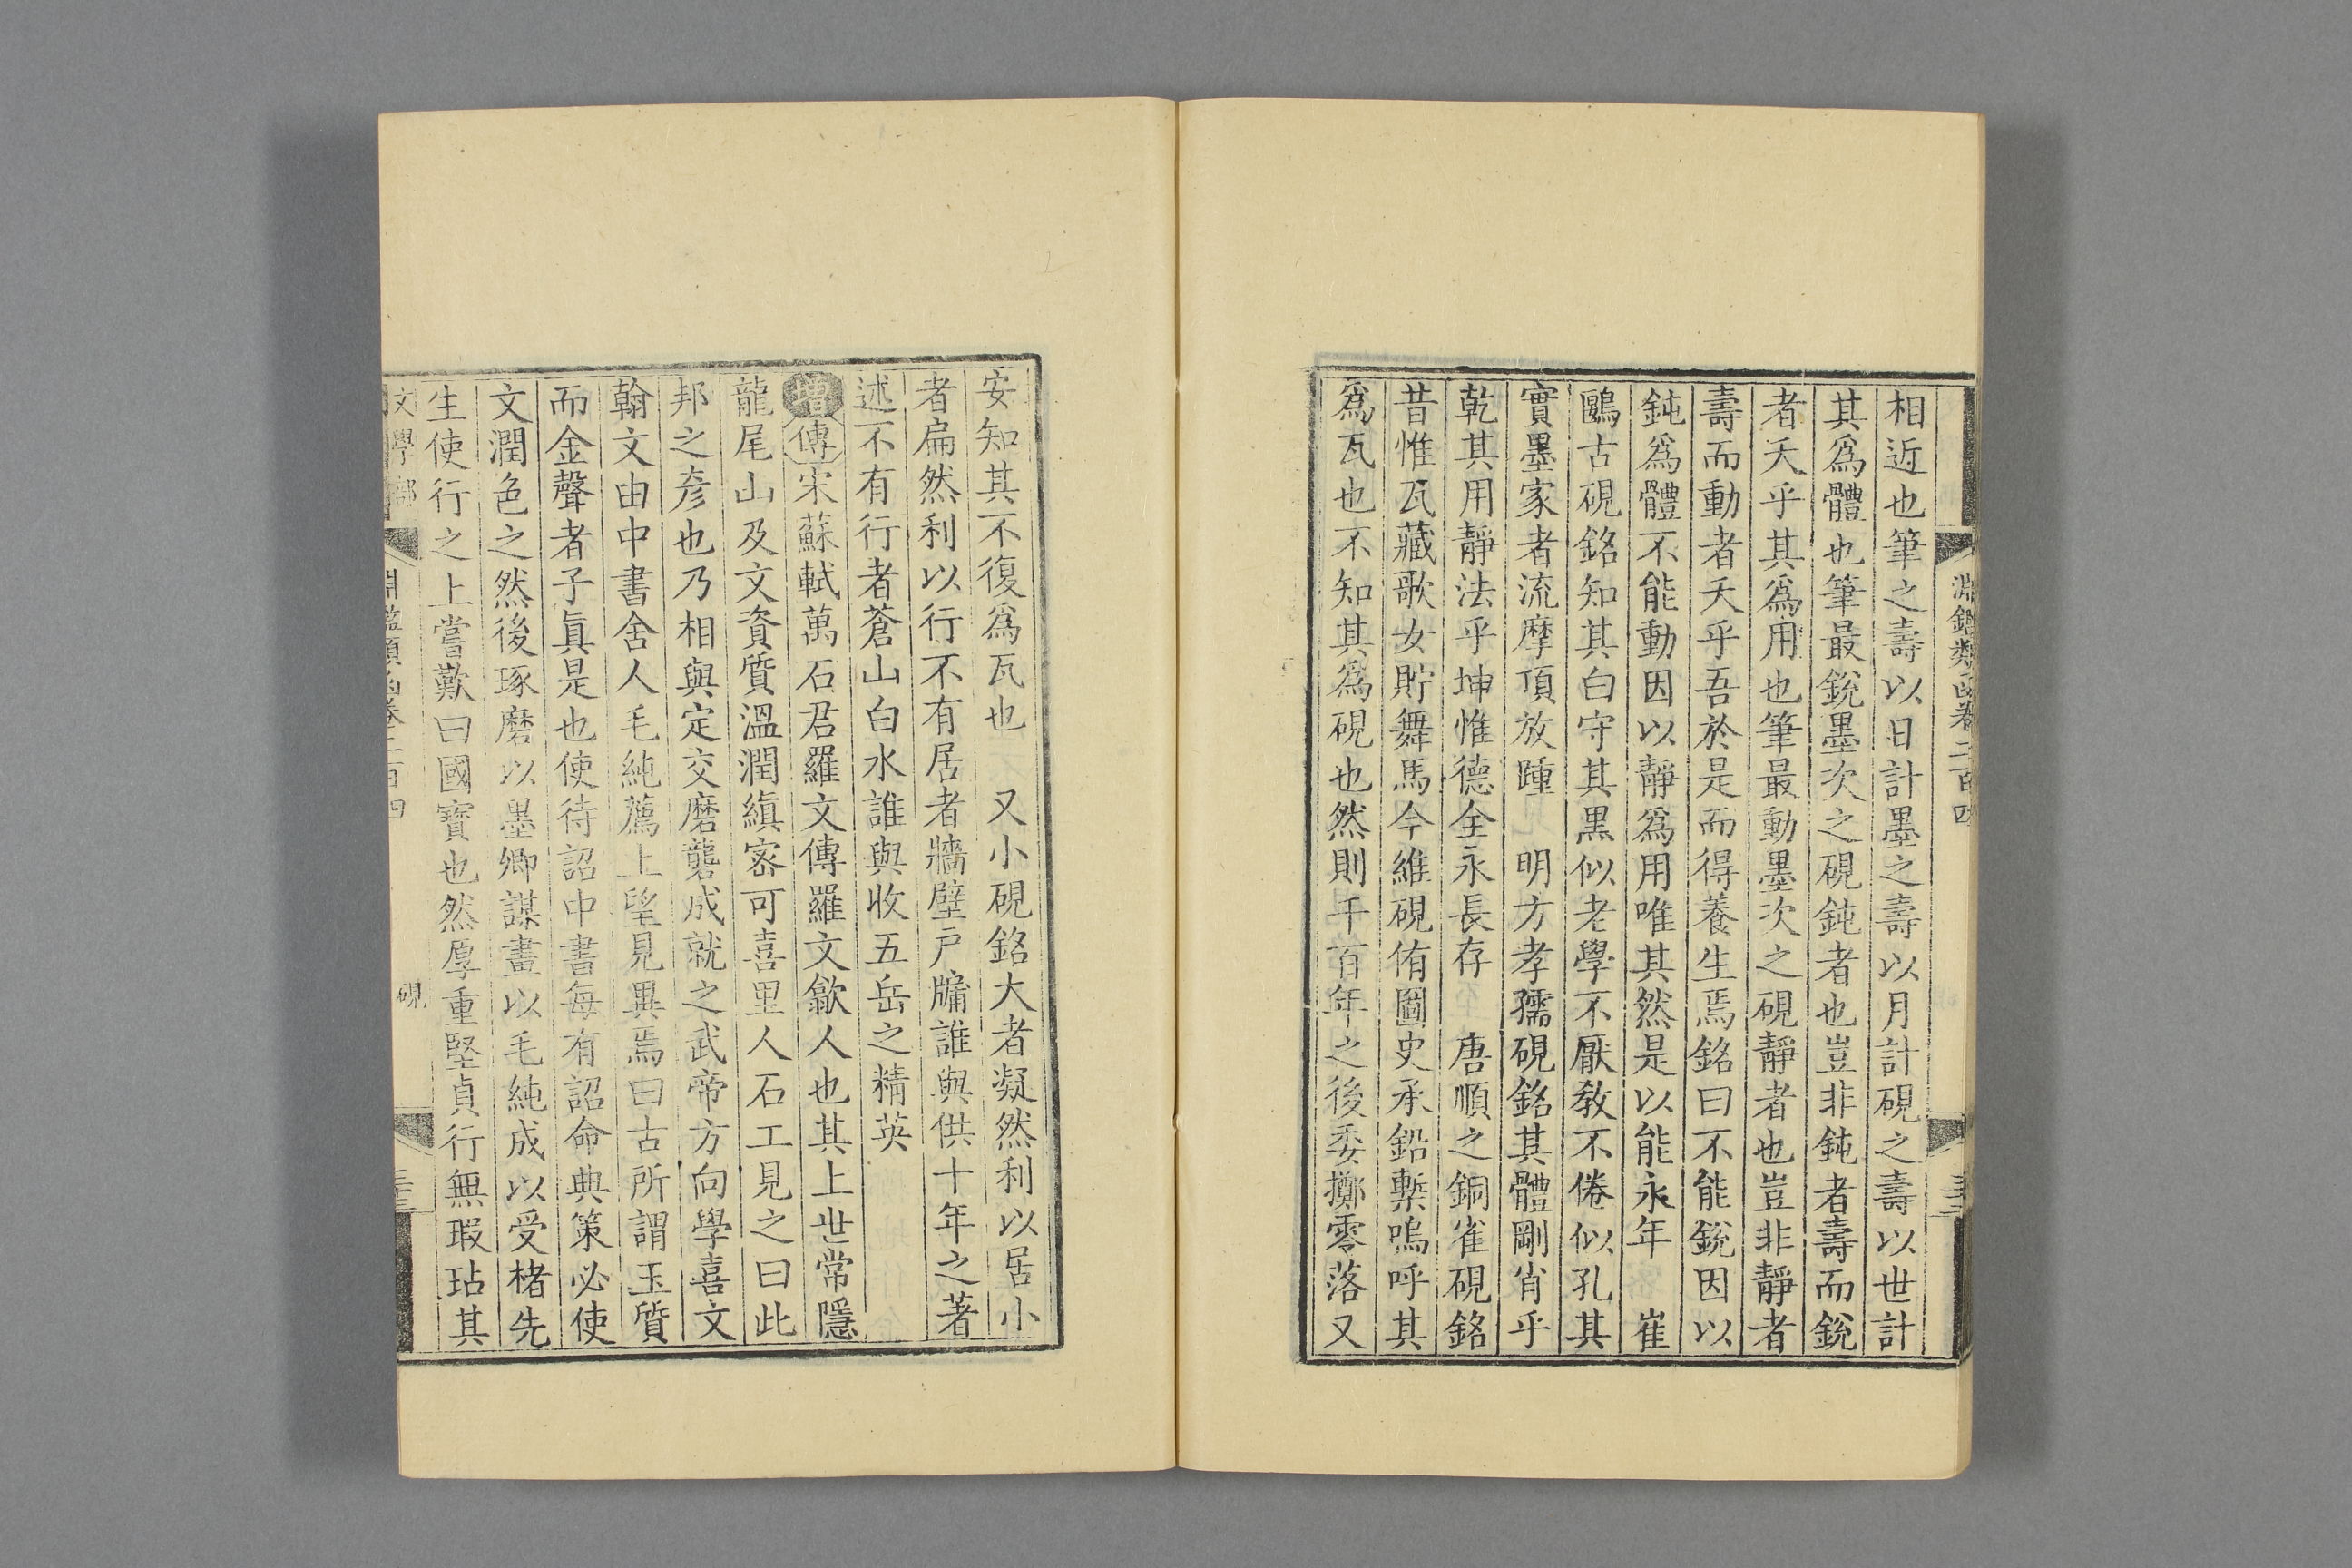 淵鑑類函卷二百四
相近也筆之壽以日計墨之壽以月計硯之壽以世計
其爲體也筆最銳墨次之硯鈍者也豈非鈍者壽而銳
者夭乎其爲用也筆最動墨次之硯靜者也豈非靜者
壽而動者夭乎吾於是而得養生焉銘曰不能銳因以
鈍爲體不能動因以靜爲用唯其然是以能永年 崔
鷗古硯銘知其白守其黑似老學不厭教不倦似孔其
實墨家者流摩頂放踵 明方孝孺硯銘其體剛肖乎
乾其用靜法乎坤惟德全永長存 唐順之銅雀硯銘
昔惟瓦藏歌女貯舞馬今維硯侑圖史承鉛槧嗚呼其
爲瓦也不知其爲硯也然則千百年之後委擲零落又
安知其不復爲瓦也 又小硯銘大者凝然利以居小
者扁然利以行不有居者牆壁戶牖誰與供十年之著
述不有行者蒼山白水誰與收五岳之精英
增傳宋蘇軾萬石君羅文傳羅文歙人也其上世常隱
龍尾山及文資質溫潤縝密可喜里人石工見之曰此
邦之彥也乃相與定交磨礱成就之武帝方向學喜文
翰文由中書舍人毛純薦上望見異焉曰古所謂玉質
而金聲者子眞是也使待詔中書每有詔命典策必使
文潤色之然後琢磨以墨卿謀畫以毛純成以受楮先
生使行之上嘗歎曰國寶也然厚重堅貞行無瑕玷其
文學部 淵鑑類函卷二百四 硯